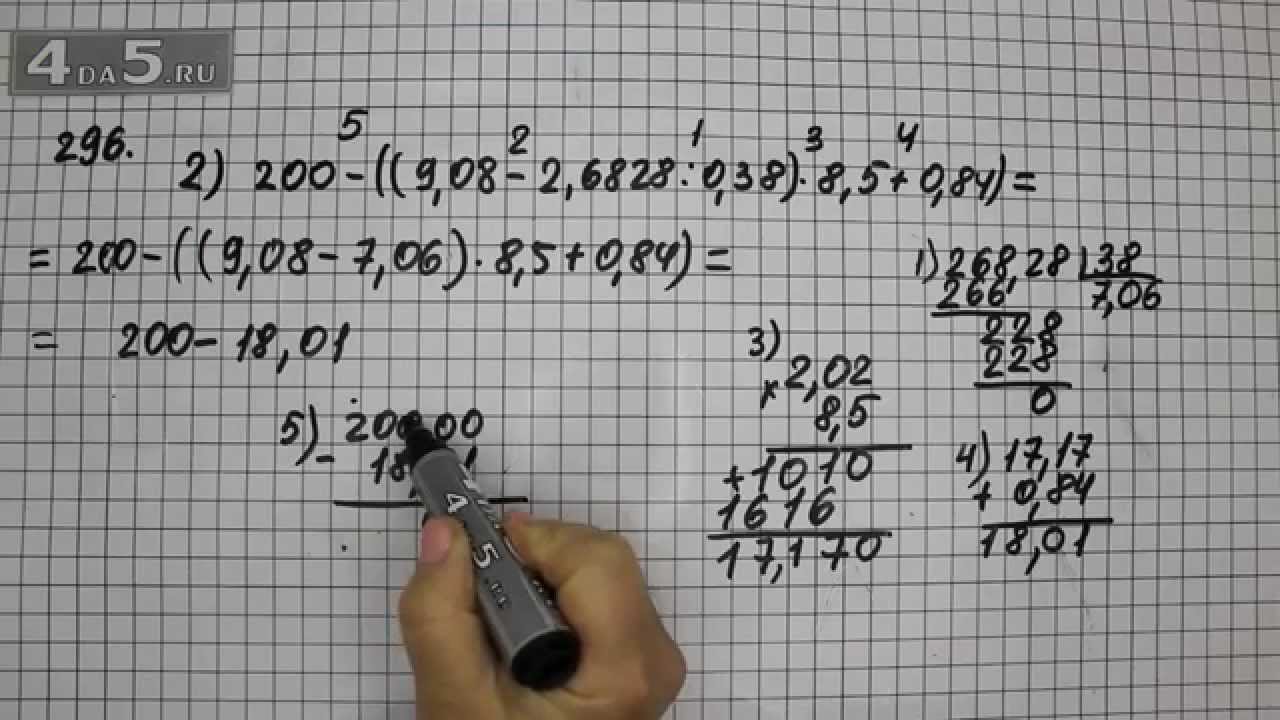 4DA5.RU
296.
5 2 1 3 4
2) 200-((9,08-2,6828:0,38)·8,5+0,84)=
=200-((9,08-7,06)·8,5+0,84)=
= 200-18,01
1) 268,28 38
266 7,06
228
228
0
3) 2,02
× 8,5
+1010
1616
17,170
4) 17,17
+ 0,84
18,01
5) 200,00
- 18 1
4 5.RU